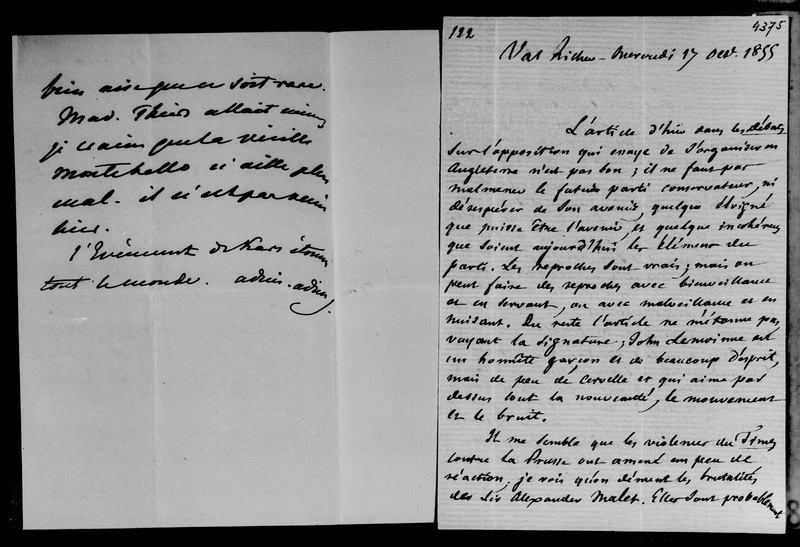 bien aise que ce soit rare.
Mad. Thiers allait mieux
je crains que la vieille
Montebello n'aille plus
mal. il n'est pas venu
hier.
l'Evénement de Kars étonne
tout le monde. adieu. adieu.
122
4375
Val Richer - Mercredi 17 Oct. 1855
L'article d'hier dans les débats
sur l'opposition qui essaye de s'organiser en
Angleterre n'est pas bon ; il ne faut pas
malmener le futur parti conservateur, ni
désespérer de son avenir, quelque éloigné
que puisse être l'avenir, et quelque incohérens
que soient aujourd'hui les élémens du
parti. Les reproches sont vrais ; mais on
peut faire des reproches avec bienveillance
et en servant, ou avec malveillance et en
nuisant. Du reste l'article ne m'étonne pas,
voyant la signature ; John Lemoinne est
un honnête garçon et de beaucoup d'esprit,
mais de peu de cervelle et qui aime par
dessus tout la nouveauté, le mouvement
et le bruit.
Il me semble que les violences du Times
contre la Prusse ont amené un peu de
réaction ; je vois qu'on dément les brutalités
de Sir Alexander Malet. Elles sont probablement